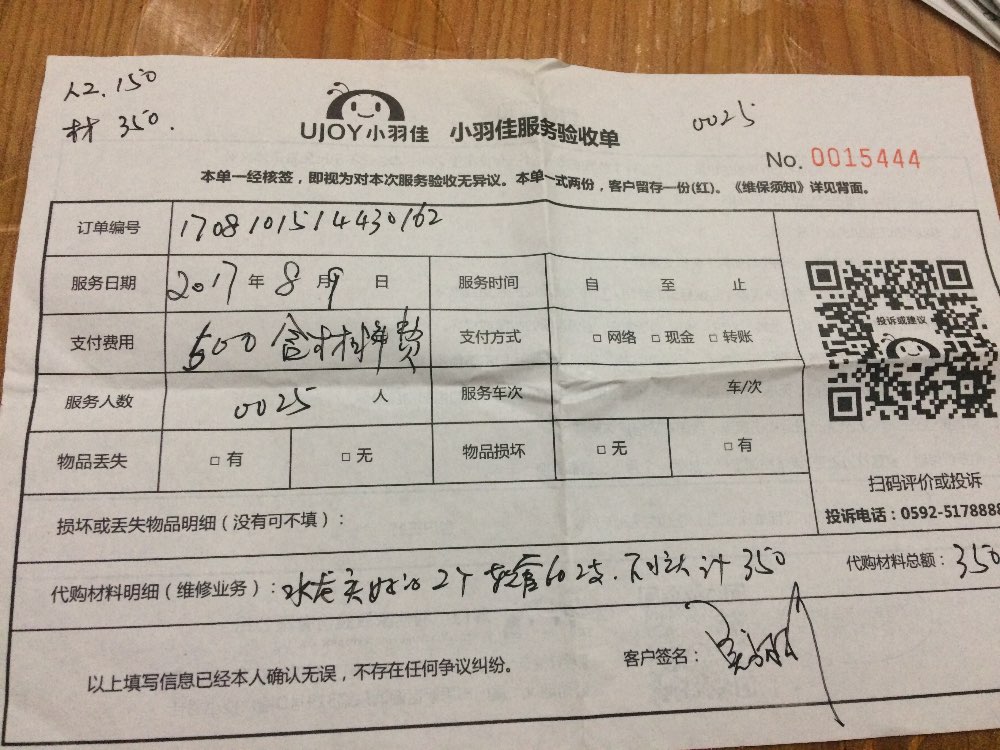 人工.150
材 350.
UJOY小羽佳 小羽佳服务验收单
0025
No. 0015444
本单一经核签，即视为对本次服务验收无异议。本单一式两份，客户留存一份(红)。《维保须知》详见背面。
订单编号 1708101514430162
服务日期 2017 年 8 月 9 日 服务时间 自 至 止
支付费用 500 含材料费 支付方式 □ 网络 □ 现金 □ 转账
服务人数 0025 人 服务车次 车/次
物品丢失 □ 有 □ 无 物品损坏 □ 无 □ 有
投诉或建议
扫码评价或投诉
投诉电话：0592-5178888
损坏或丢失物品明细（没有可不填）：
代购材料明细（维修业务）：水龙头 2个 软管602支. 计350 代购材料总额：350
以上填写信息已经本人确认无误，不存在任何争议纠纷。 客户签名：